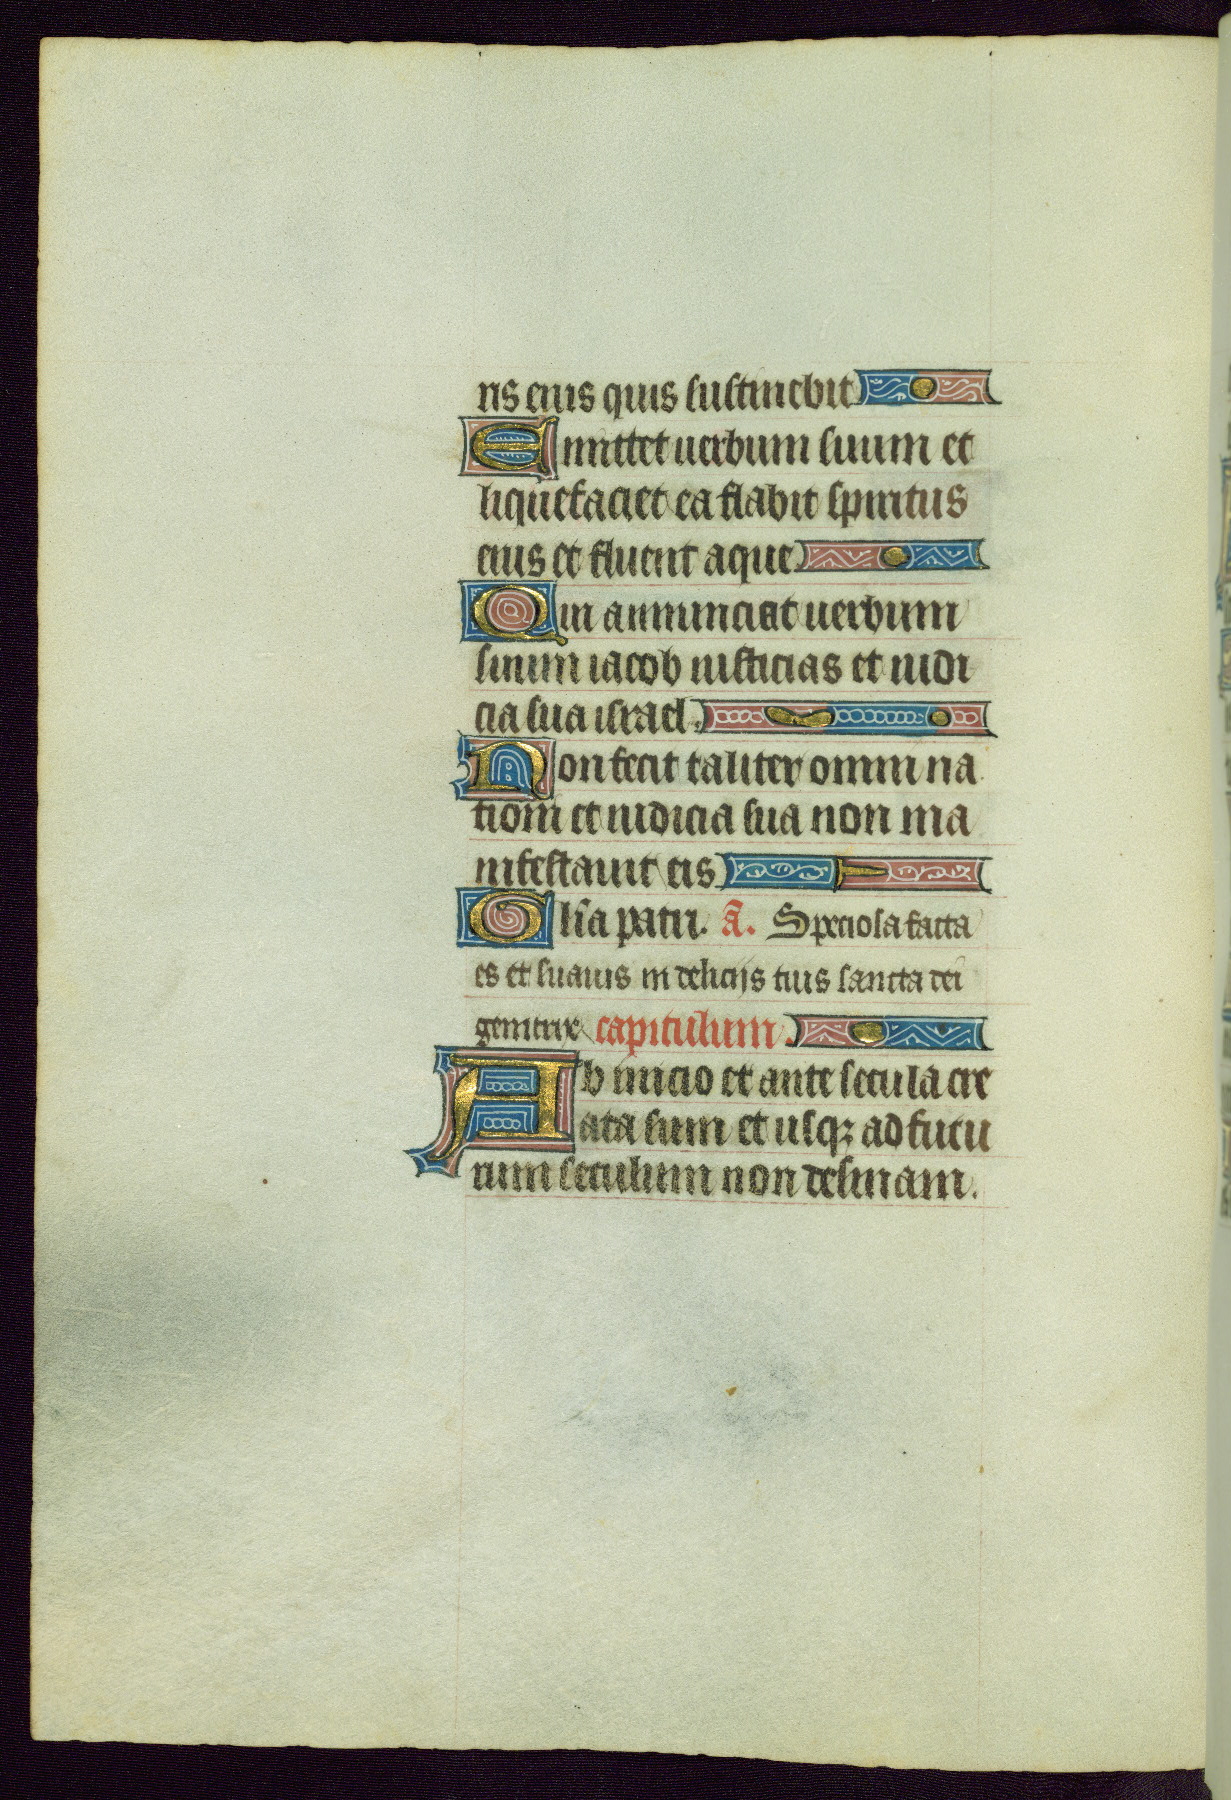 ris eius quis sustinebit
Emittet uerbum suum et
liquefaciet ea flabit spiritus
eius et fluent aque
Qui annunciat uerbum
suum iacob iusticias et iudi
cia sua israel.
Non fecit taliter omni na
tioni et iudicia sua non ma
nifestauit eis
Glĩa patri. Ã. Speciosa facta
es et suauis in delicijs tuis sancta dei
genitrix capitulum.
Ab inicio et ante secula cre
ata sum et usqꝫ ad futu
rum seculum non desinam.